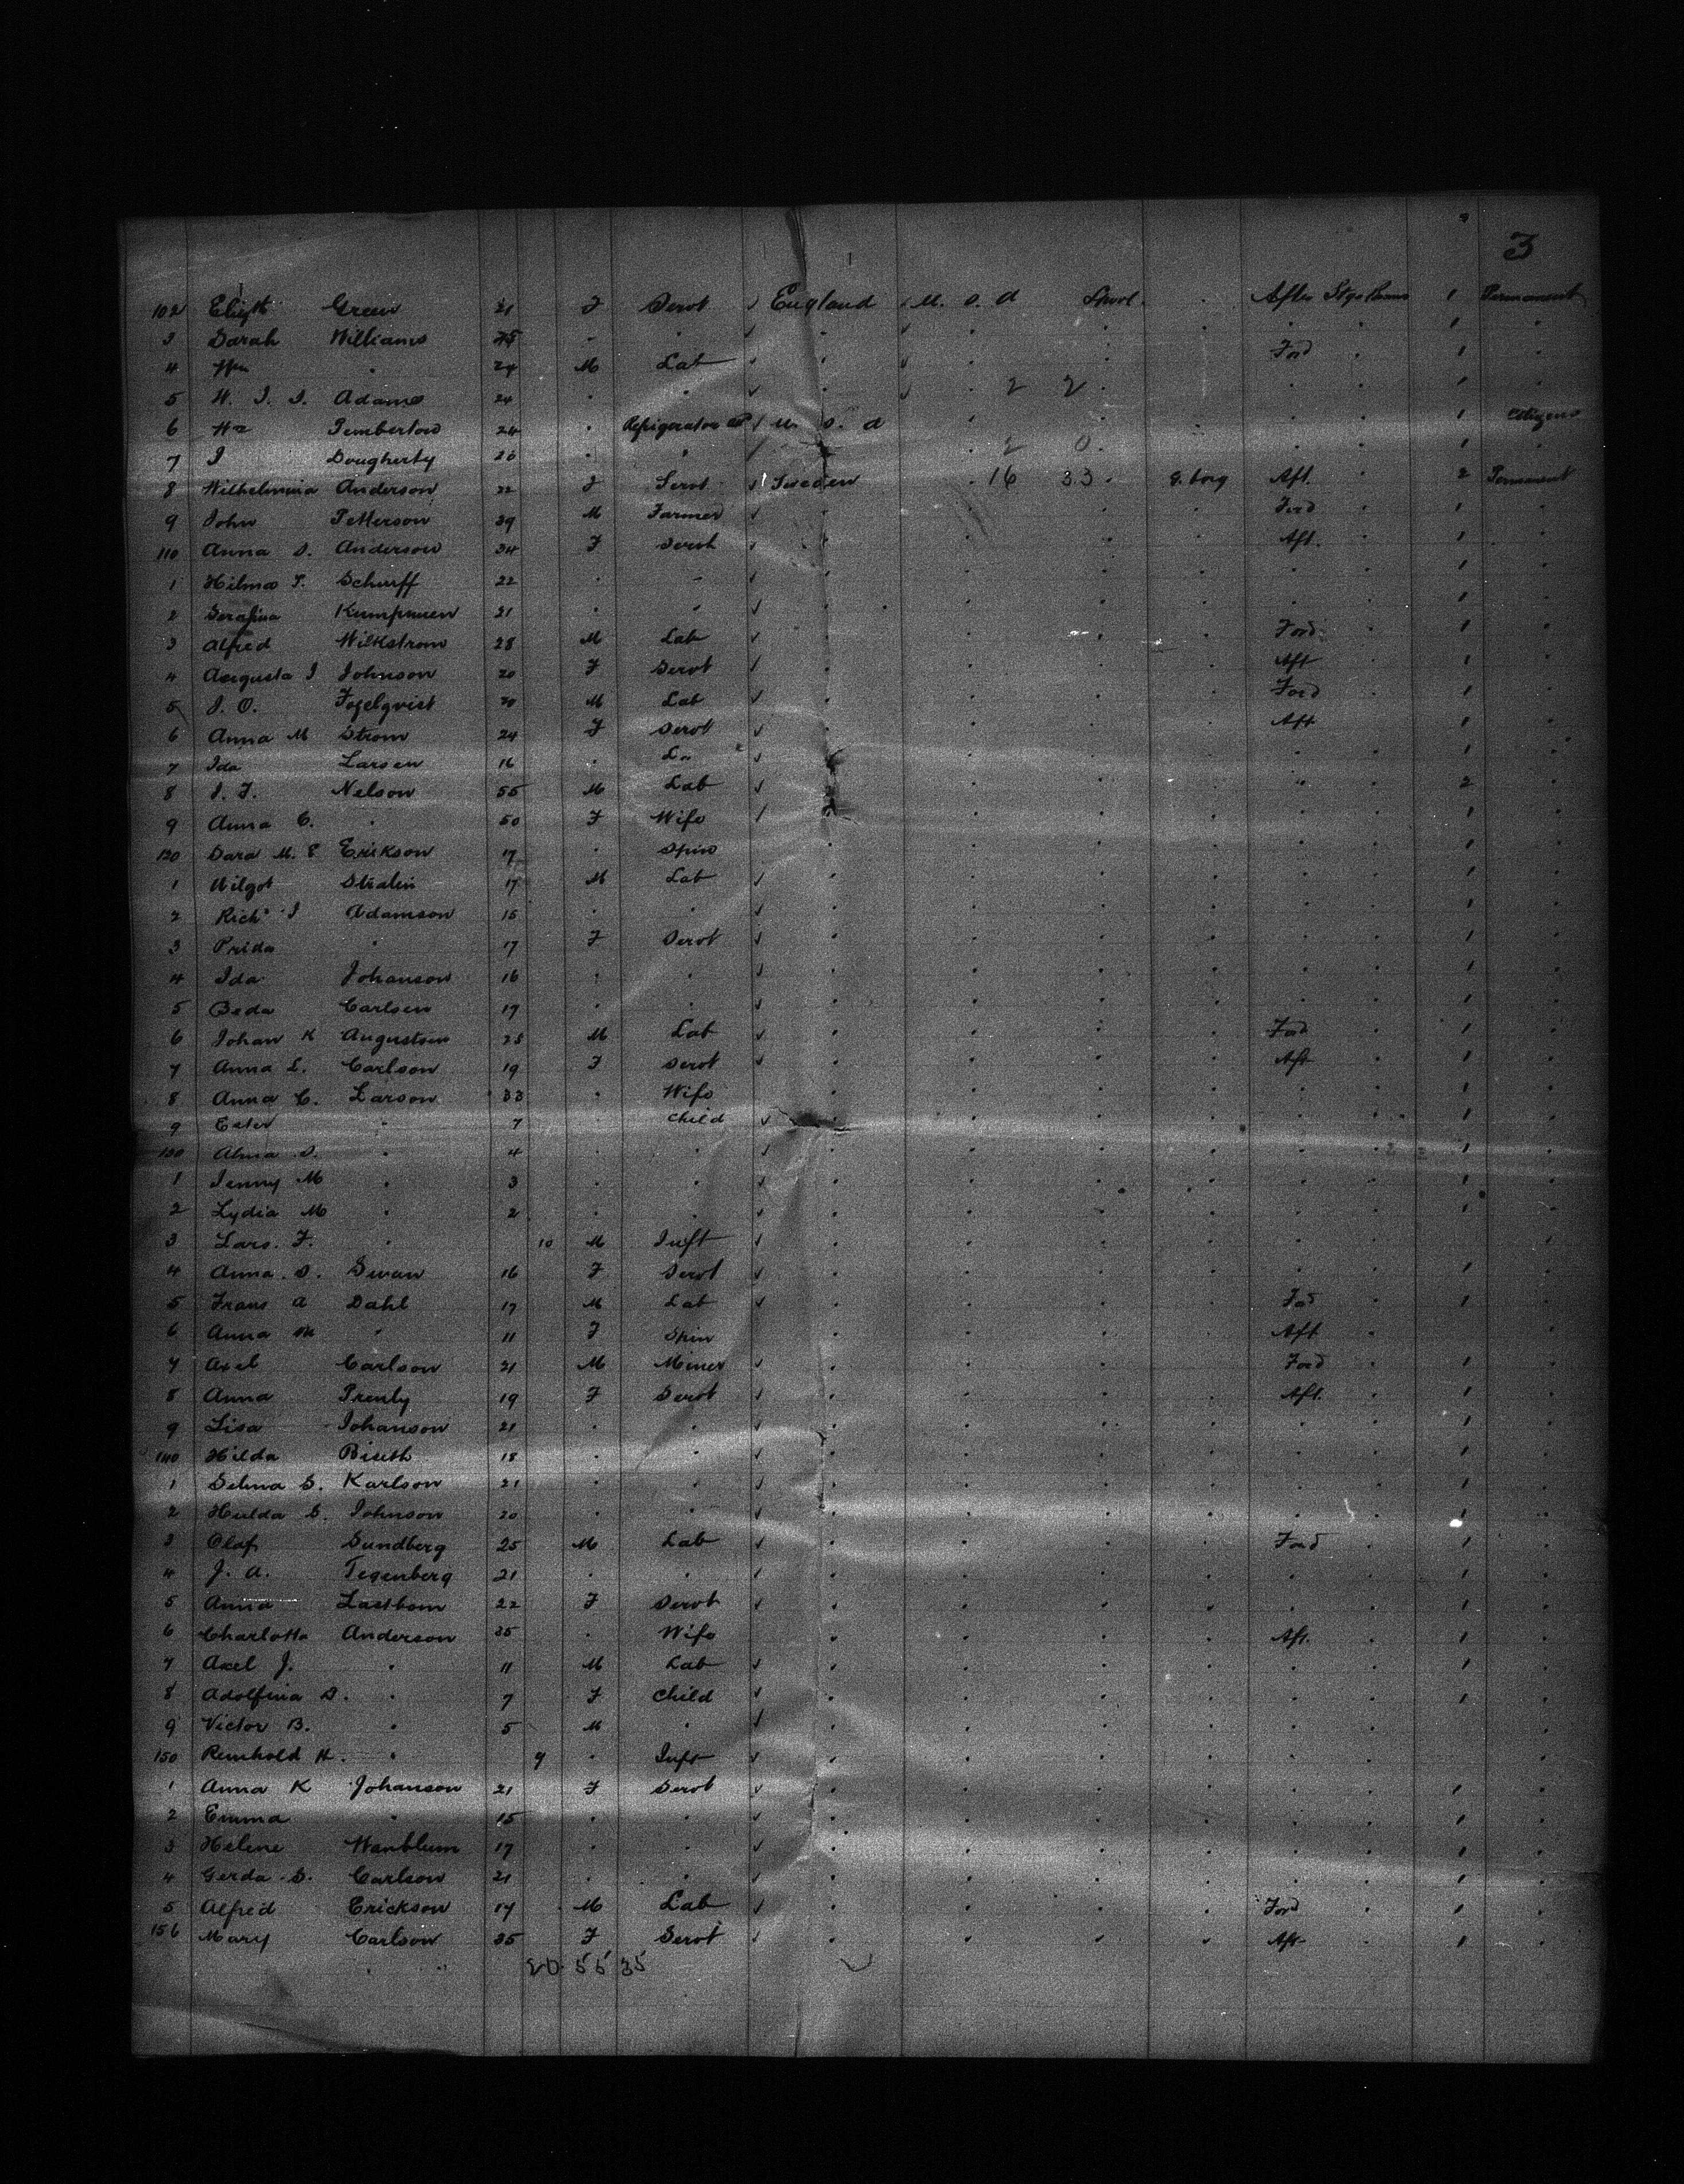 3
102 Elizth Green 21 F Servt ✓ England ✓ U. S. A Livrl. " After Stge Prom 1 Permanent
3 Sarah Williams " " ✓ " ✓ " " " 1 "
4 Wm " 24 M Lab ✓ " ✓ " Ford " 1 "
5 W. J. J. Adams 24 " " ✓ " ✓ 2 2 " " " 1 "
6 Pemberton 24 " Refrigerator ✓ U. S. A " " " 1 Citizens
7 J Dougherty 26 " " ✓ " 2 0 " " " 1 "
8 Wilhelmina Anderson 22 F Servt ✓ Sweden " 16 33 " G. borg Aft. " 2 Permanent
9 John Petterson 39 M Farmer ✓ " " " " Ford " 1 "
110 Anna S. Anderson 34 F Servt ✓ " " " " Aft. " 1 "
1 Hilma T. Schurff 22 " " ✓ " " " " " " 1 "
2 Serafina Kumpnuen 21 " " ✓ " " " " " " 1 "
3 Alfred Wilkstrom 28 M Lab ✓ " " " " Ford " 1 "
4 Augusta J Johnson 20 F Servt ✓ " " " " Aft " 1 "
5 J. O. Fogelqvist 20 M Lab ✓ " " " " Ford " 1 "
6 Anna M Strom 24 F Servt ✓ " " " " Aft " 1 "
7 Ida Larsen 16 " ✓ " " " " " " 1 "
8 J. F. Nelson 55 M Lab ✓ " " " " " " 2 "
9 Anna C. " 50 F Wife ✓ " " " " " " 1 "
120 Sara M. E Erikson 17 " Spin " " " " " " 1 "
1 Wilgot Stralin 17 M Lab ✓ " " " " " " 1 "
2 Richd J Adamson 15 " " ✓ " " " " " " 1 "
3 Frida " 17 F Servt ✓ " " " " " " 1 "
4 Ida Johanson 16 " " ✓ " " " " " " 1 "
5 Beda Carlsen 19 " " ✓ " " " " " " 1 "
6 Johan K Augustson 28 M Lab ✓ " " " " Ford " 1 "
7 Anna L. Carlson 19 F Servt ✓ " " " " Aft " 1 "
8 Anna C. Larson 33 " Wife " " " " " " 1 "
9 Ester " 7 " Child ✓ " " " " " " 1 "
130 Alma S. " 4 " " ✓ " " " " " " 1 "
1 Jenny M " 3 " " ✓ " " " " " " 1 "
2 Lydia M " 2 " " ✓ " " " " " " 1 "
3 Lars. F. " 10 M Inft ✓ " " " " " " "
4 Anna. S. Swan 16 F Servt ✓ " " " " " " 1 "
5 Frans A Dahl 17 M Lab ✓ " " " " Ford " 1 "
6 Anna M " 11 F Spin " " " " Aft " "
7 Axel Carlson 21 M Miner ✓ " " " " Ford " 1 "
8 Anna Prenly 19 F Servt ✓ " " " " Aft. " 1 "
9 Lisa Johanson 21 " " ✓ " " " " " " 1 "
140 Hilda Biseth 18 " " ✓ " " " " " " 1 "
1 Selma S. Karlson 21 " " ✓ " " " " " " 1 "
2 Hulda S. Johnson 20 " " ✓ " " " " " " 1 "
3 Olaf Sundberg 25 M Lab ✓ " " " " Ford " 1 "
4 J. A. Tegenberg 21 " " ✓ " " " " " " 1 "
5 Anna Lastbom 22 F Servt ✓ " " " " " " 1 "
6 Charlotta Anderson 35 " Wife " " " " Aft. " 1 "
7 Axel J. " 11 M Lab ✓ " " " " " " 1 "
8 Adolfina S. " 7 F Child ✓ " " " " " " 1 "
9 Victor B. " 5 M " ✓ " " " " " " "
150 Reinhold H. " 9 " Inft ✓ " " " " " " "
1 Anna K Johanson 21 F Servt ✓ " " " " " " 1 "
2 Emma " 15 " " ✓ " " " " " " 1 "
3 Helene Wanblum 17 " " ✓ " " " " " " 1 "
4 Gerda S. Carlson 21 " " ✓ " " " " " " 1 "
5 Alfred Erickson 14 M Lab ✓ " " " " Ford " 1 "
156 Mary Carlson 35 F Servt ✓ " " " " Aft " 1 "
20 55 35